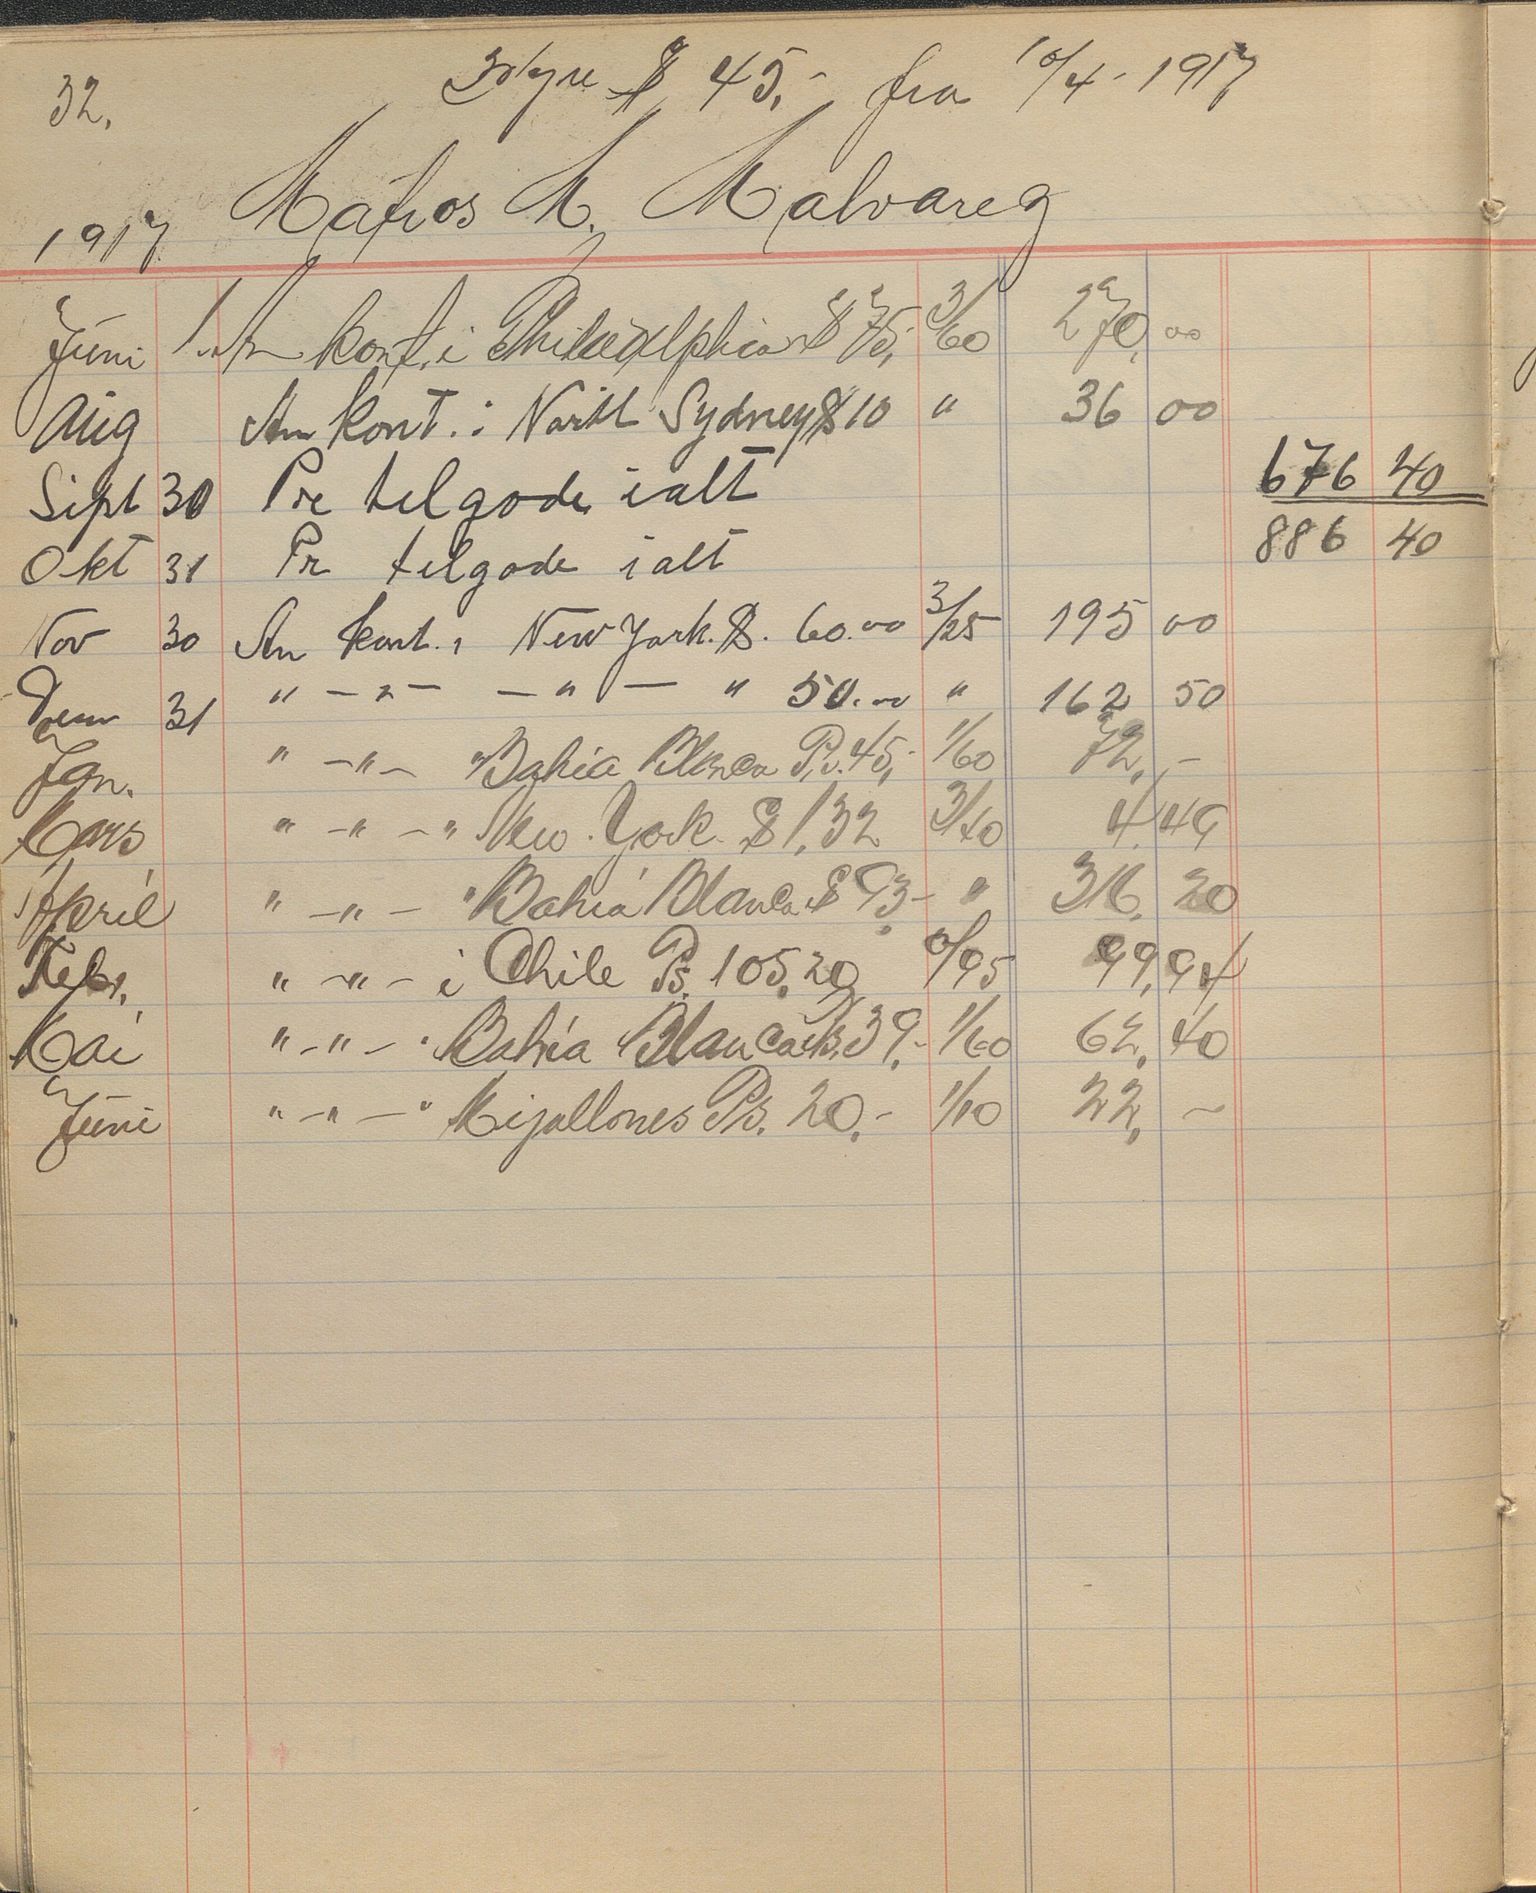 32.
Hyre $ 45,- fra 10/4-1917
1917 Matros M. Malvareg
Juni 1. An kont. i Philadelphia $ 75,- 3/60 270,00
Aug An kont. i North Sydney $ 10 " 36 00
Sept 30 Pr tilgode ialt 676 40
Okt 31 Pr tilgode ialt 886 40
Nov 30 An kont. i New York. $. 60.00 3/25 195 00
Desm 31 " — " — — " — " 50.00 " 162 50
Jan. " — " — " Bahia Blanca Ps. 45,- 1/60 72,-
Mars " — " — " New York $ 1,32 3/40 4,49
April " — " — " Bahia Blanca $ 93- " 316,20
Febr. " — " — i Chile Ps. 105,20 0/95 99,94
Mai " — " — " Bahia Blanca Ps. 39,- 1/60 62,40
Juni " — " — " Mijallones Ps. 20.- 1/10 22,-